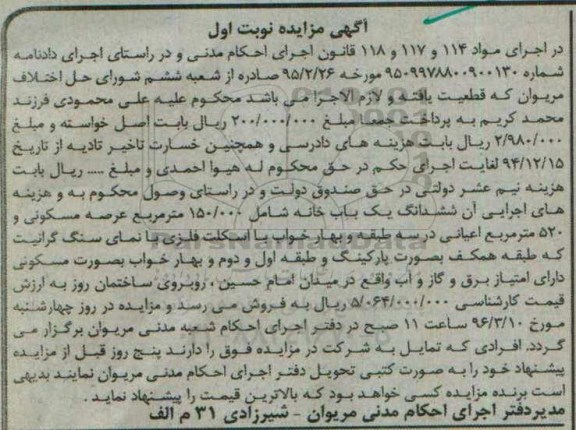 آگهی مزایده نوبت اول
در اجرای مواد ۱۱۴ و ۱۱۷ و ۱۱۸ قانون اجرای احکام مدنی و در راستای اجرای دادنامه
شماره ۹۵۰۹۹۷۸۸۰۰۹۰۰۱۳۰ مورخه ۹۵/۲/۲۶ صادره از شعبه ششم شورای حل اختلاف
مریوان که قطعیت یافته و لازم الاجرا می باشد محکوم علیه علی محمودی فرزند
محمد کریم به پرداخت جمعا مبلغ ۲۰۰/۰۰۰/۰۰۰ ریال بابت اصل خواسته و مبلغ
۲/۹۸۰/۰۰۰ ریال بابت هزینه های دادرسی و همچنین خسارت تاخیر تادیه از تاریخ
۹۴/۱۲/۱۵ لغایت اجرای حکم در حق محکوم له هیوا احمدی و مبلغ ..... ریال بابت
هزینه نیم عشر دولتی در حق صندوق دولت و در راستای وصول محکوم به و هزینه
های اجرایی آن ششدانگ یک باب خانه شامل ۱۵۰/۰۰۰ مترمربع عرصه مسکونی و
۵۲۰ مترمربع اعیانی در سه طبقه و بهار خواب با اسکلت فلزی با نمای سنگ گرانیت
که طبقه همکف بصورت پارکینگ و طبقه اول و دوم و بهار خواب بصورت مسکونی
دارای امتیاز برق و گاز و آب واقع در میدان امام حسین ، روبروی ساختمان روز به ارزش
قیمت کارشناسی ۵/۰۶۴/۰۰۰/۰۰۰ ریال به فروش می رسد و مزایده در روز چهارشنبه
مورخ ۹۶/۳/۱۰ ساعت ۱۱ صبح در دفتر اجرای احکام شعبه مدنی مریوان برگزار می
گردد. افرادی که تمایل به شرکت در مزایده فوق را دارند پنج روز قبل از مزایده
پیشنهاد خود را به صورت کتبی تحویل دفتر اجرای احکام مدنی مریوان نمایند بدیهی
است برنده مزایده کسی خواهد بود که بالاترین قیمت را پیشنهاد نماید .
مدیردفتر اجرای احکام مدنی مریوان - شیرزادی ۳۱ م الف